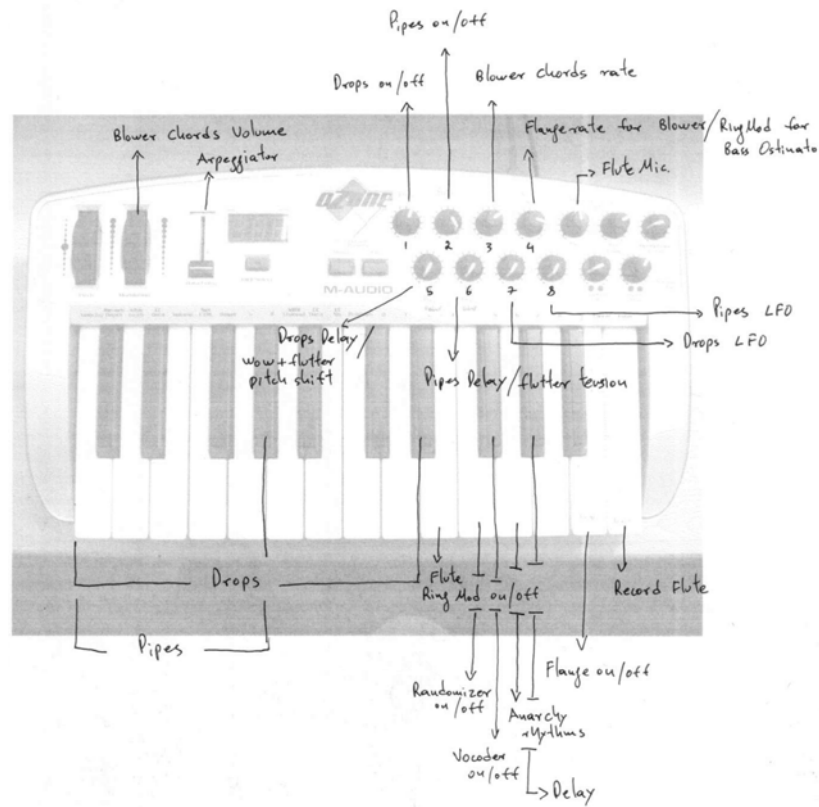 Pipes on/off
Drops on/off
Blower chords rate
Blower Chords Volume
Flange rate for Blower/Ring Mod for
Bass Ostinato
Arpeggiator
Flute Mic.
OZONE
1 2 3 4
M-AUDIO
5 6 7 8
Pipes LFO
Drops Delay/
wow+flutter
pitch shift
Drops LFO
Pipes Delay/flutter tension
Drops
Flute
Ring Mod on/off
Record Flute
Pipes
Flange on/off
Randomizer
on/off
Anarchy
rhythms
Vocoder
on/off
Delay